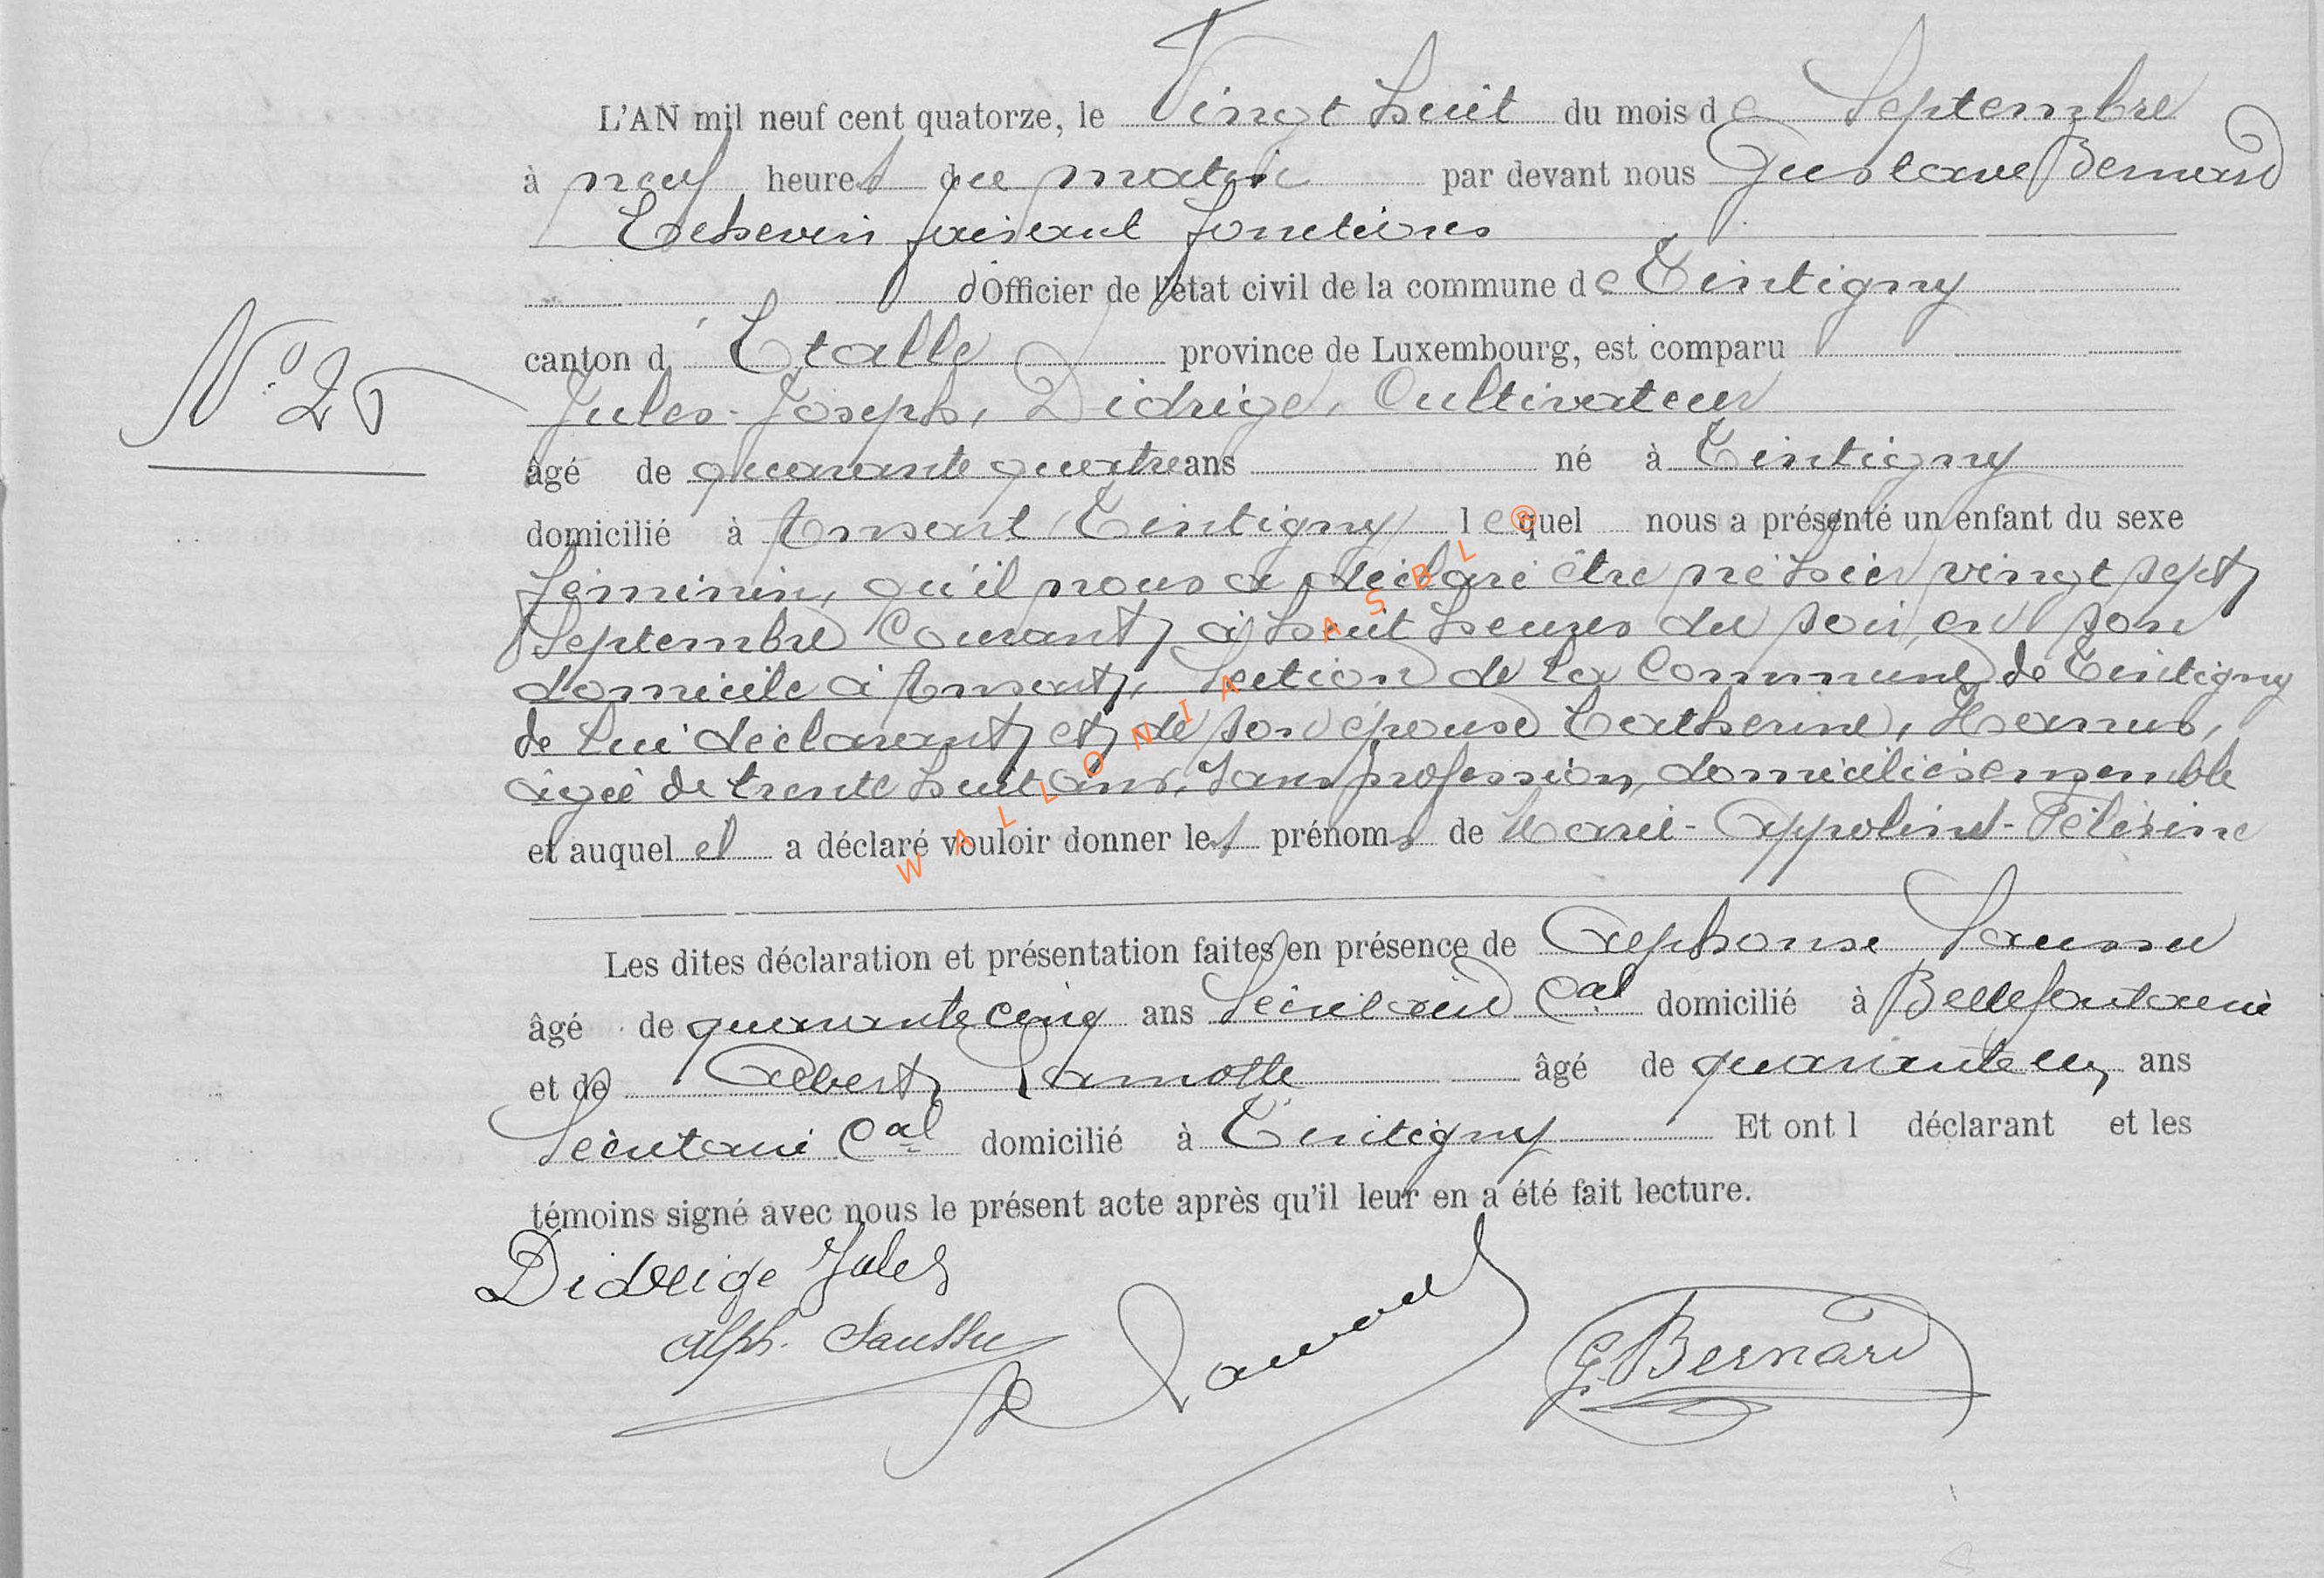 L'AN mil neuf cent quatorze, le Vingt huit du mois de Septembre
à neuf heures du matin par devant nous Gustave Bernard
Echevin faisant fonctions
d'Officier de l'état civil de la commune de Tintigny
N° 25
canton d'Etalle province de Luxembourg, est comparu
Jules-Joseph, Didrige, Cultivateur
âgé de quarante quatre ans né à Tintigny
domicilié à Ansart (Tintigny) lequel nous a présenté un enfant du sexe
féminin, qu'il nous a déclaré être né hier vingt sept
Septembre Courant, à huit heures du soir, en son
domicile à Ansart, Section de la Commune de Tintigny
de lui déclarant et de son épouse Catherine,
âgée de trente huit ans, Sans profession, domiciliés ensemble
et auquel il a déclaré vouloir donner les prénoms de Marie-Appoline-
Les dites déclaration et présentation faites en présence de Alphonse Saussu
âgé de quarante cinq ans Secrétaire Cal domicilié à Bellefontaine
et de Albert Lamotte âgé de quarante un ans
Secrétaire Cal domicilié à Tintigny Et ont l déclarant et les
témoins signé avec nous le présent acte après qu'il leur en a été fait lecture.
Didrige Jules
Alph. Saussu
G. Bernard
WALLONIA ASBL ®